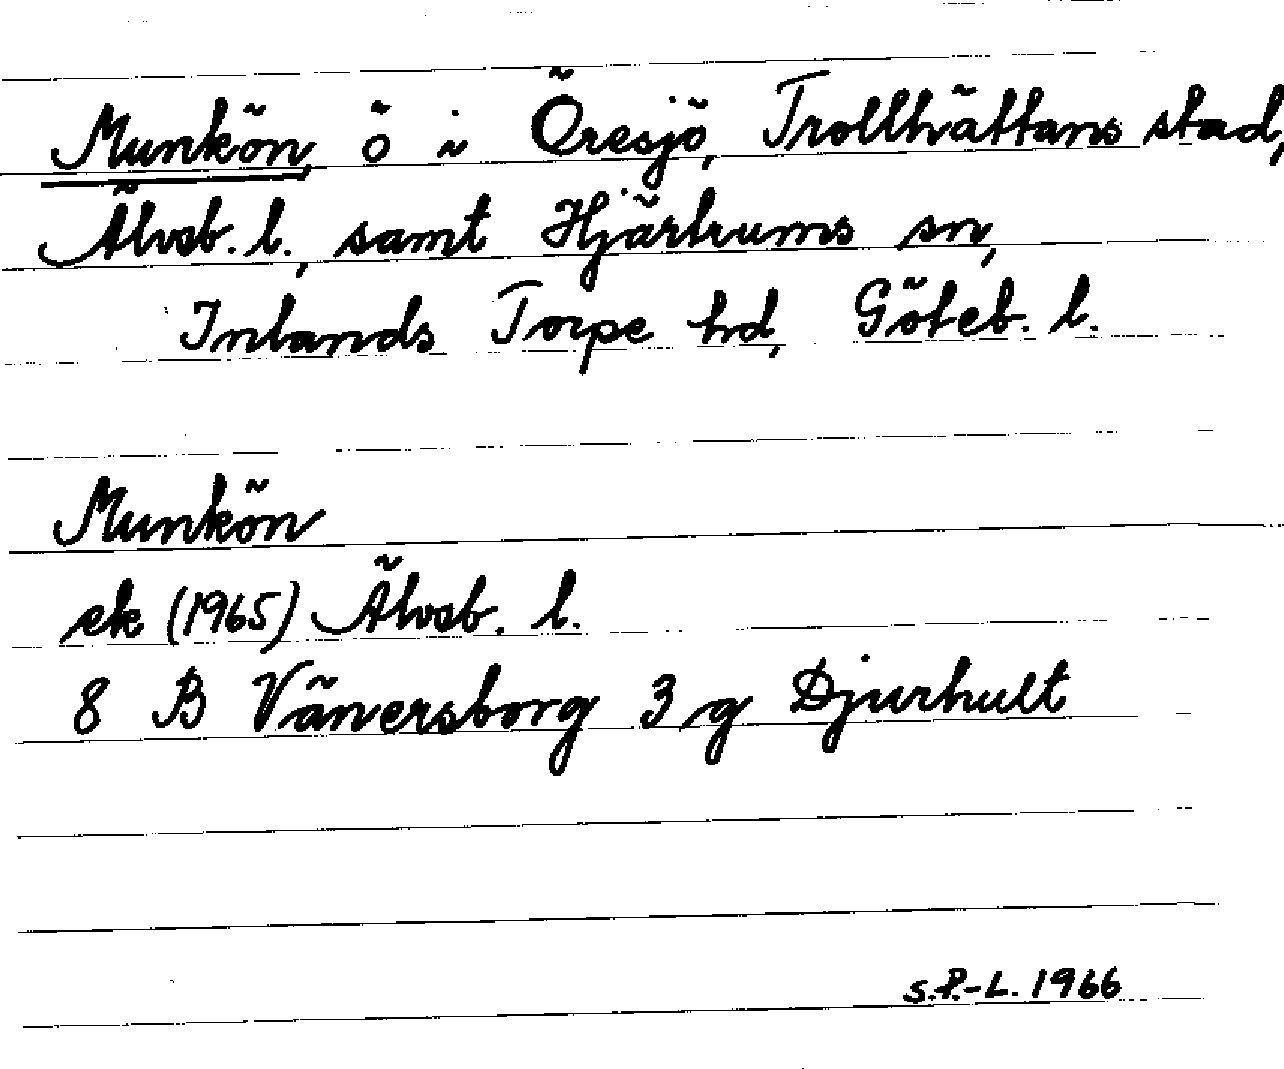 Munkön, ö i Öresjö, Trollhättans stad,
Älvsb. l., samt Hjärtrums sn,
Inlands Torpe hd, Göteb. l.
Munkön
ek (1965) Älvsb. l.
8 B Vänersborg 3 g Djurhult
S.P.-L. 1966